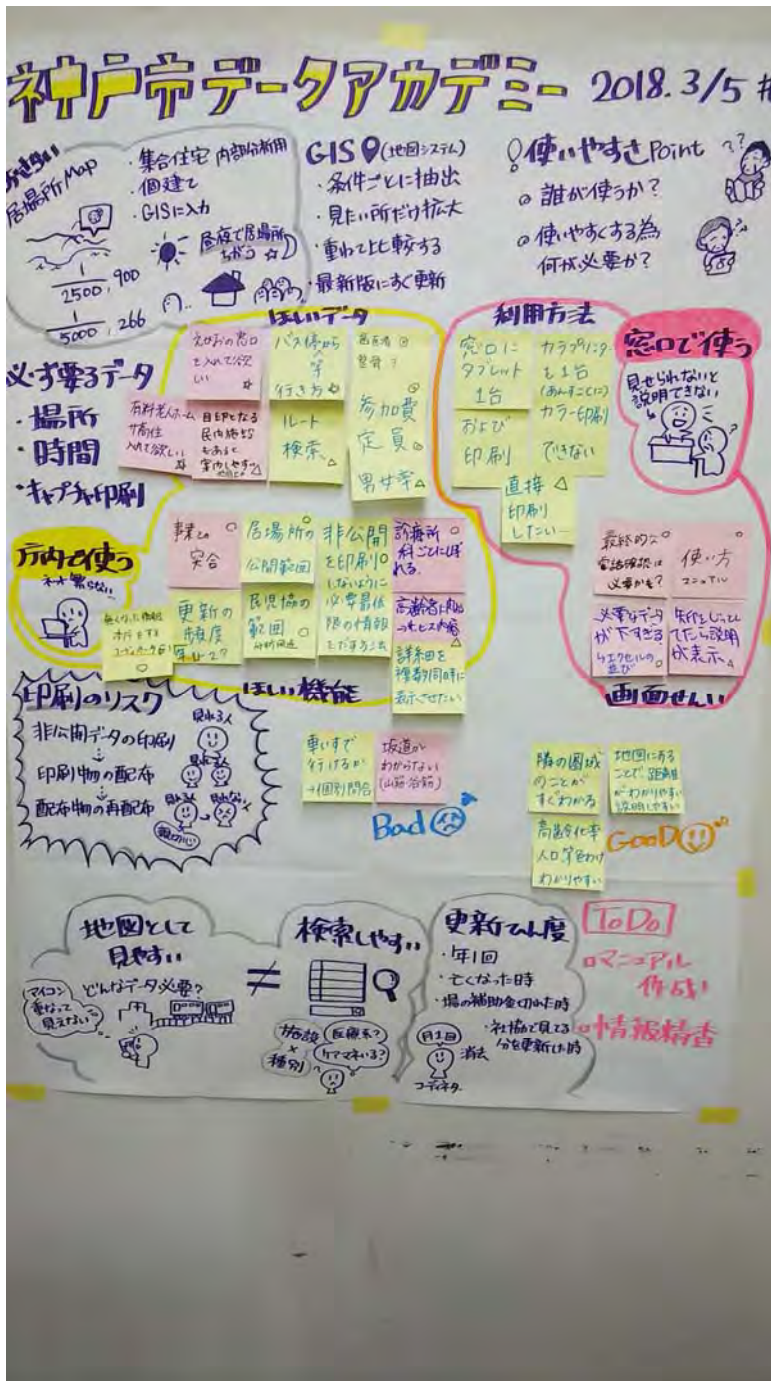 神戸市データアカデミー 2018.3/5
居場所Map
・集合住宅 内部分析用
・個建て
・GISに入力
昼夜で居場所
ちがう☆
1/2500, 900
1/5000, 266
GIS (地図システム)
・条件ごとに抽出
・見たい所だけ拡大
・重ねて比較する
・最新版にすぐ更新
使いやすさPoint
??
誰が使うか?
使いやすくする為
何が必要か?
必ず要るデータ
・場所
・時間
・キャプチャ印刷
ほしいデータ
えがおの窓口
を入れて欲
しい
バス停から
行き方
有料老人ホーム
サ高住
入れて欲しい
目印となる
民間施設
もあると
ルート
検索 △
参加費
定員
男女率 △
利用方法
窓口に
タブレット
1台
および
印刷
カラープリンター
も1台
(あんすこに)
カラー印刷
できない
直接 △
印刷
したい
窓口で使う
見せられないと
説明できない
庁内で使う
ネット繋らない
事業との
突合
居場所の
公開範囲
非公開
を印刷
しないように
必要最低
限の情報
をだす方法
診療所
科ごとにしぼ
れる
更新の
頻度
民児協の
範囲
高齢者に向けた
サービス内容
詳細を
複数同時に
表示させたい
ほしい機能
最終的な
電話確認は
必要かも?
使い方
マニュアル
必要なデータ
が下すぎる
エクセルの
並び
矢印をじっとし
てたら説明
が表示 △
画面せんい
印刷のリスク
非公開データの印刷
見れる人
印刷物の配布
配布物の再配布
車いすで
行けるか
→個別問合
坂道が
わからない
(山筋・谷筋)
Bad
隣の圏域
のことが
すぐわかる
地図にある
ことで距離
がわかりやすい
説明しやすい
高齢化率
人口等色わけ
わかりやすい
GooD
地図として
見やすい
どんなデータ必要?
マイコン
重なって
見えない
≠
検索しやすい
施設
×
種別
医療系?
ケアマネいる?
更新てん度
・年1回
・亡くなった時
・場の補助金切れた時
・社協で見てる
分を更新した時
月1回
消去
コーディネーター
ToDo
□マニュアル
作成!
□情報精査